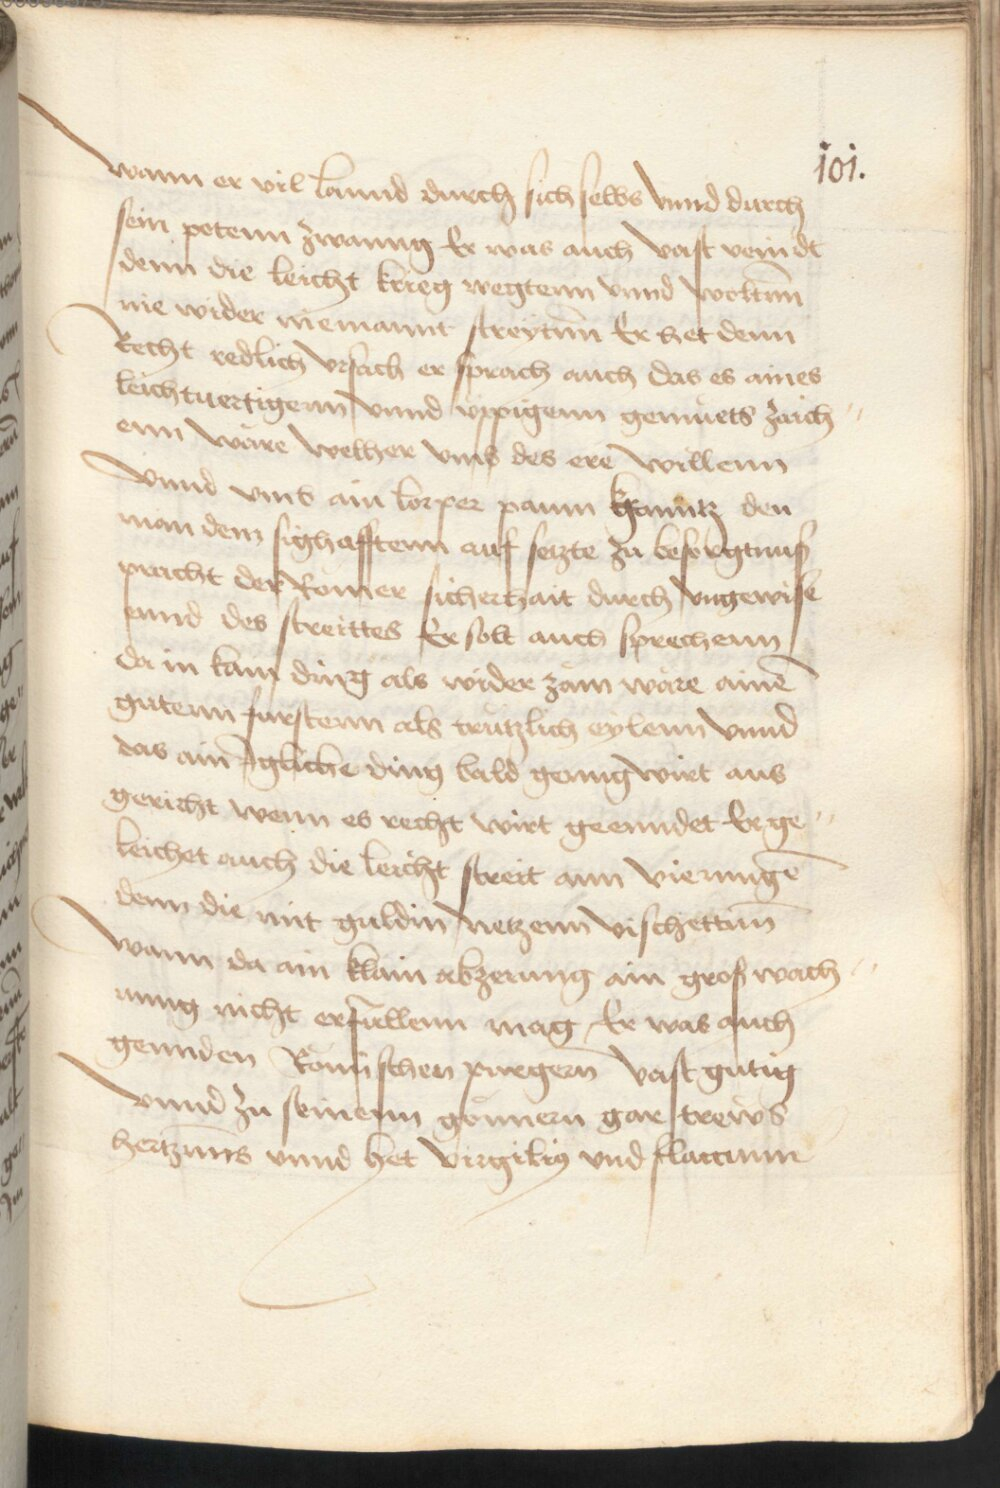 101.
wann er vil lannd durch sich selbs vnnd durch
sein potenn zwanng Er was auch vast veindt
denn die leicht krieg wegtenn vnnd woltn̄
nie wider niemannt streytn̄ Er het denn
Recht redlich vrsach er sprach auch das es aines
leichtuertigenn vnnd üppigenn gemuets zaich
enn wäre welher vmb des ere willenn
vnnd vmb ain lorper paum krantz den
man dem sighafftenn auf setzte zu besorgtnuß
pracht der Romer sicherhait durch vngewise
ennd des streittes Er solt auch sprechenn
da in kam ding als wider zäm wäre ainē
gutenn furstenn als trützlich eylenn vnnd
das ain ygliche ding bald genug wirt aus
gericht wenn es recht wirt geenndet Er ge
leichet auch die leicht streit ann vierungē
denn die mit guldin netzenn vischettn̄
wann da ain klain abzerung ain groß wach
nung nicht erfüllenn mag Er was auch
genn den Römischen purgern̄ vast gütig
vnnd zu seinenn gönnern gar trews
hertznns vnnd het virgiliꝰ vnd flaccum